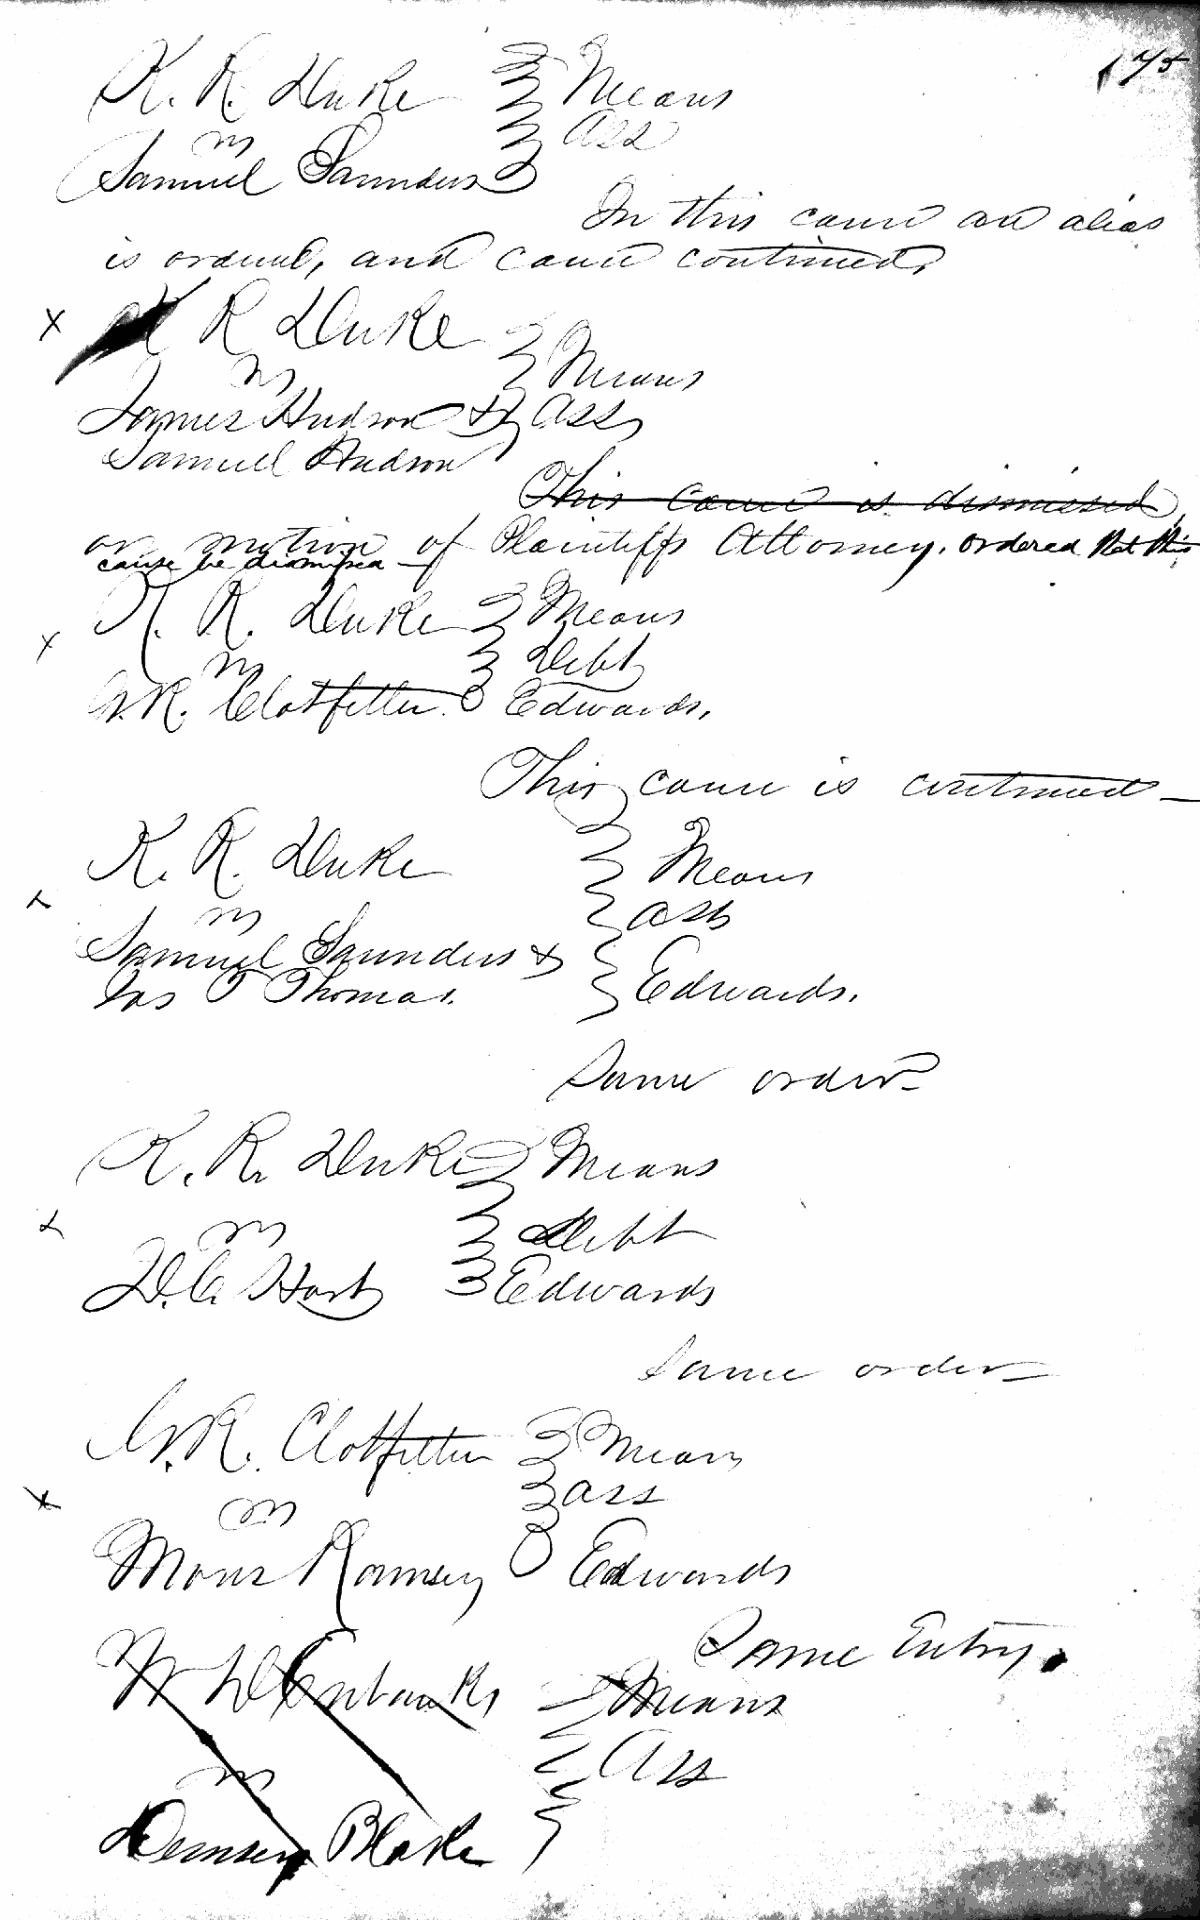 175
K. R. Duke Means
vs Ass
Samuel Saunders
In this cause an alias
is ordered, and cause continued,
x K R Duke
vs Means
James Hudson & Ass
Samuel Hudson
This cause is dismissed
on motion of Plaintiffs Attorney. ordered that this
cause be dismissed
K. R. Duke Means
x vs Debt
G. R. Clotfelter. Edwards,
This cause is continued
K. R. Duke Means
x vs Ass
Samuel Saunders &
Jas T Thomas. Edwards.
Same order
K. R. Duke Means
x vs Debt
D. C. Hart Edwards
Same order
G. R. Clotfelter Means
x vs Ass
Ramsey Edwards
Same Entry.
W D Eubanks Means
vs Ass
Demsey Blake